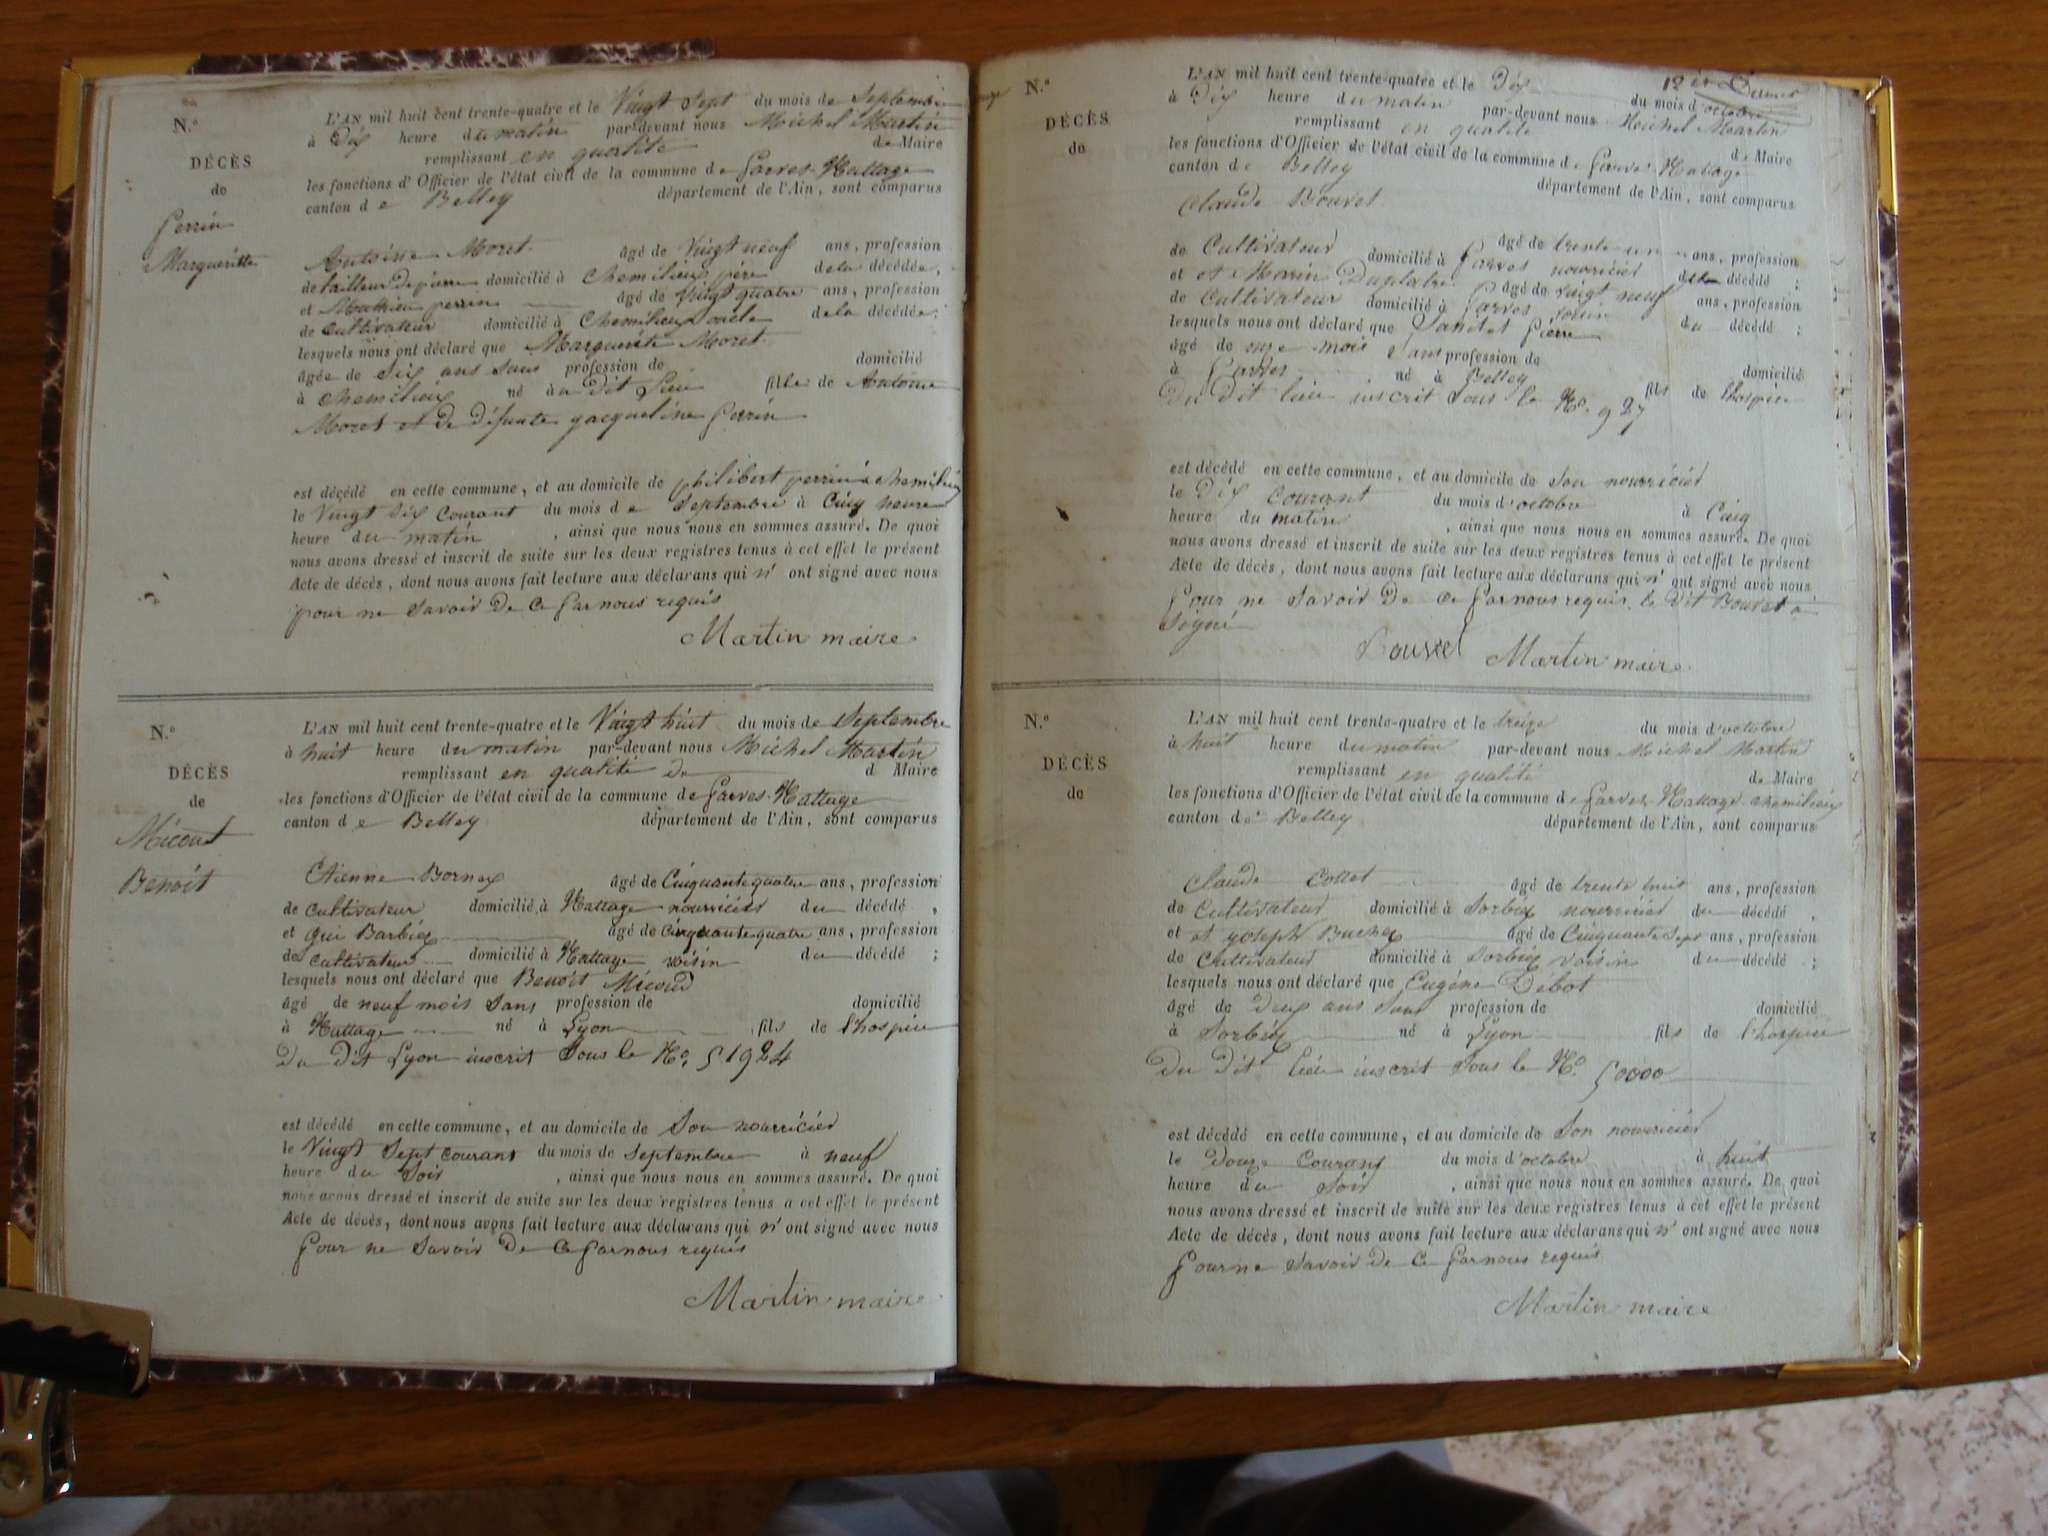 N.º
DÉCÈS
de
Perrin
Marguerite
L'AN mil huit cent trente-quatre et le Vingt Sept du mois de Septembre
à Dix heure du matin par-devant nous Michel Martin
remplissant en qualité de Maire
les fonctions d'Officier de l'état civil de la commune de Parves-Nattage
canton de Belley département de l'Ain, sont comparus
Antoine Moret âgé de Vingt neuf ans, profession
de tailleur De pierre domicilié à Chemilieu père de la décédée,
et Mathieu perrin âgé de Vingt quatre ans, profession
de Cultivateur domicilié à Chemilieu oncle de la décédée;
lesquels nous ont déclaré que Marguerite Moret
âgée de Six ans Sans profession de domicilié
à Chemilieu né au Dit Lieu fille de Antoine
Moret et De Défunte jacqueline Perrin
est décédé en cette commune, et au domicile de philibert perrin à chemilieu
le Vingt Six Courant du mois de Septembre à Cinq heure
heure du matin, ainsi que nous nous en sommes assuré. De quoi
nous avons dressé et inscrit de suite sur les deux registres tenus à cet effet le présent
Acte de décès, dont nous avons fait lecture aux déclarans qui n' ont signé avec nous
pour ne Savoir De Ce Par nous requis
Martin maire
N.º
DÉCÈS
de
Micoud
Benoit
L'AN mil huit cent trente-quatre et le Vingt huit du mois de Septembre
à huit heure du matin par-devant nous Michel Martin
remplissant en qualité de d Maire
les fonctions d'Officier de l'état civil de la commune de Parves-Nattage
canton de Belley département de l'Ain, sont comparus
Etienne Bornex âgé de Cinquante quatre ans, profession
de Cultivateur domicilié à Nattage nourricier du décédé,
et Gui Barbier âgé de Cinquante quatre ans, profession
de Cultivateur domicilié à Nattage voisin du décédé;
lesquels nous ont déclaré que Benoit Micoud
âgé de neuf mois Sans profession de domicilié
à Nattage né à Lyon fils de l'hospice
Du Dit Lyon inscrit Sous le No. 51924
est décédé en cette commune, et au domicile de Son nourricier
le Vingt Sept courant du mois de Septembre à neuf
heure du Soir, ainsi que nous nous en sommes assuré. De quoi
nous avons dressé et inscrit de suite sur les deux registres tenus a cet effet le présent
Acte de décès, dont nous avons fait lecture aux déclarans qui n' ont signé avec nous
Pour ne Savoir De Ce Par nous requis
Martin maire
12
N.º
DÉCÈS
de
L'AN mil huit cent trente-quatre et le Dix du mois d'octobre
à Dix heure du matin par-devant nous Michel Martin
remplissant en qualité de Maire
les fonctions d'Officier de l'état civil de la commune de Parves-Nattage
canton de Belley département de l'Ain, sont comparus
Claude Bouvet
âgé de trente un ans, profession
de Cultivateur domicilié à Parves nourricier du décédé;
et et Morin Duplatre âgé de vingt neuf ans, profession
de Cultivateur domicilié à Parves voisin du décédé;
lesquels nous ont déclaré que Pierre
âgé de onze mois Sans profession de domicilié
à Parves né à Belley fils de l'hospice
Du Dit lieu inscrit Sous le No. 927
est décédé en cette commune, et au domicile de Son nourricier
le Dix Courant du mois d'octobre à Cinq
heure du matin, ainsi que nous nous en sommes assuré. De quoi
nous avons dressé et inscrit de suite sur les deux registres tenus à cet effet le présent
Acte de décès, dont nous avons fait lecture aux déclarans qui n' ont signé avec nous
Pour ne Savoir De Ce Par nous requis. le Dit Bouvet a
Signé
Bouvet Martin maire
N.º
DÉCÈS
de
L'AN mil huit cent trente-quatre et le treize du mois d'octobre
à huit heure du matin par-devant nous Michel Martin
remplissant en qualité de Maire
les fonctions d'Officier de l'état civil de la commune de Parves-Nattage-chemilieu
canton de Belley département de l'Ain, sont comparus
Claude Collet âgé de trente huit ans, profession
de Cultivateur domicilié à Sorbix nourricier du décédé,
et et joseph Buchex âgé de Cinquante Sept ans, profession
de Cultivateur domicilié à Sorbix voisin du décédé;
lesquels nous ont déclaré que Eugène Débot
âgé de Deux ans Sans profession de domicilié
à Sorbix né à Lyon fils de l'hospice
Du Dit Lieu inscrit Sous le No. 50000
est décédé en cette commune, et au domicile de Son nourricier
le Douze Courant du mois d'octobre à huit
heure du Soir, ainsi que nous nous en sommes assuré. De quoi
nous avons dressé et inscrit de suite sur les deux registres tenus à cet effet le présent
Acte de décès, dont nous avons fait lecture aux déclarans qui n' ont signé avec nous
Pour ne Savoir De Ce Par nous requis
Martin maire